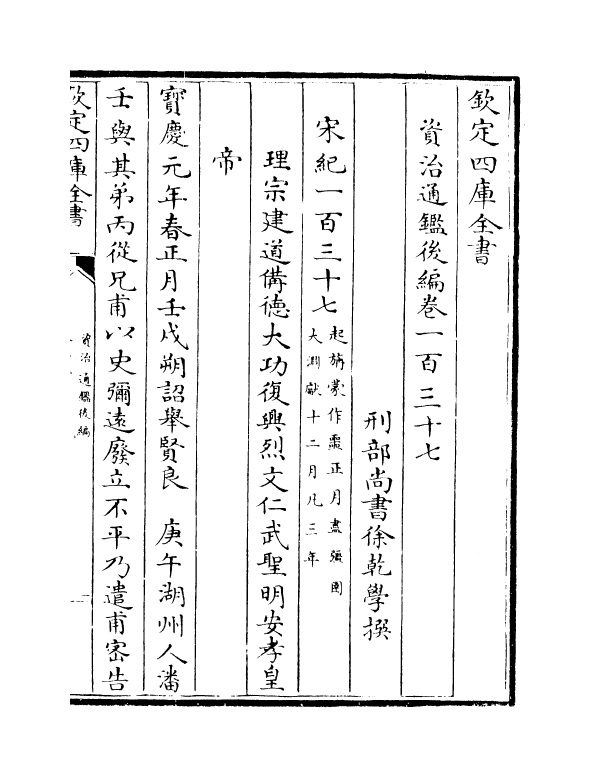 欽定四庫全書
資治通鑑後編卷一百三十七
刑部尚書徐乾學撰
宋紀一百三十七
起旃蒙作噩正月盡彊圉
大淵獻十二月凡三年
理宗建道備德大功復興烈文仁武聖明安孝皇
帝
寶慶元年春正月壬戌朔詔舉賢良　庚午湖州人潘
壬與其弟丙從兄甫以史彌遠廢立不平乃遣甫密告
欽定四庫全書
資治通鑑後編